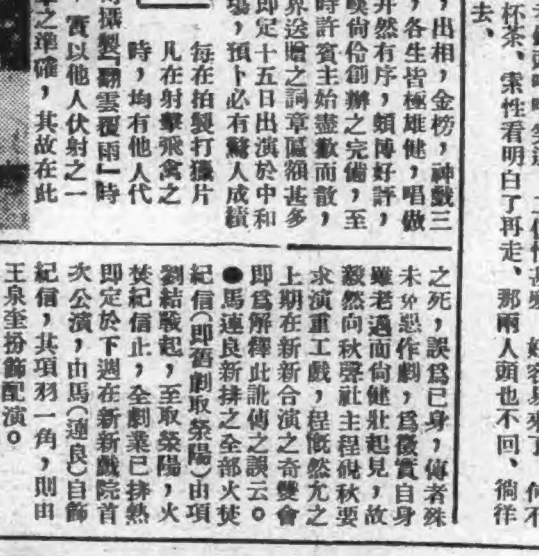 去、
杯茶、索性看明白了再走、那兩人頭也不回、徜徉
，出相，金榜，神戲三
，各生皆極雄健，唱做
井然有序，頗博好評，
嘆尙伶創辦之完備，至
時許賓主始盡歡而散，
界送贈之詞章匾額甚多
即定十五日出演於中和
塲，預卜必有驚人成績
每在拍製打獵片
凡在射擊飛禽之
時，均有他人代
攝製『翻雲覆雨』時
實以他人伏射之一
之準確，其故在此
之死，誤爲已身，傳者殊
未免惡作劇，爲徵實自身
雖老邁而尙健壯起見，故
毅然向秋聲社主程硯秋要
求演重工戲，程慨然允之
上期在新新合演之奇雙會
即爲解釋此訛傳之誤云。
●馬連良新排之全部火焚
紀信（即舊劇取滎陽）由項
劉結戰起，至取滎陽，火
焚紀信止，全劇業已排熟
即定於下週在新新戲院首
次公演，由馬（連良）自飾
紀信，其項羽一角，則由
王泉奎扮飾配演。